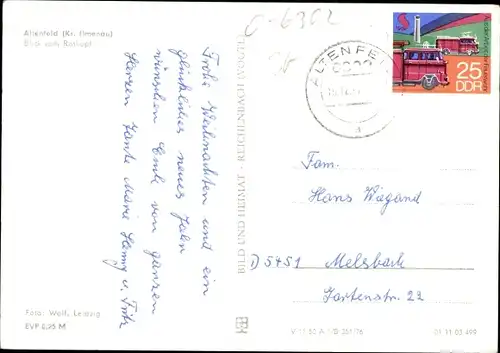 Altenfeld (Kr. Ilmenau)
Blick vom Roskopf
Frohe Weihnachten und ein
glückliches neues Jahr
wünschen Euch von ganzen
Herzen Tante Marie Hanny u. Fritz
Foto: Wolf, Leipzig
EVP 0,25 M
BILD UND HEIMAT · REICHENBACH (VOGTL)
ALTENFELD
25
DDR
Fam.
Hans Wiegand
D 5451 Melsbach
Gartenstr. 22
01 11 03 499